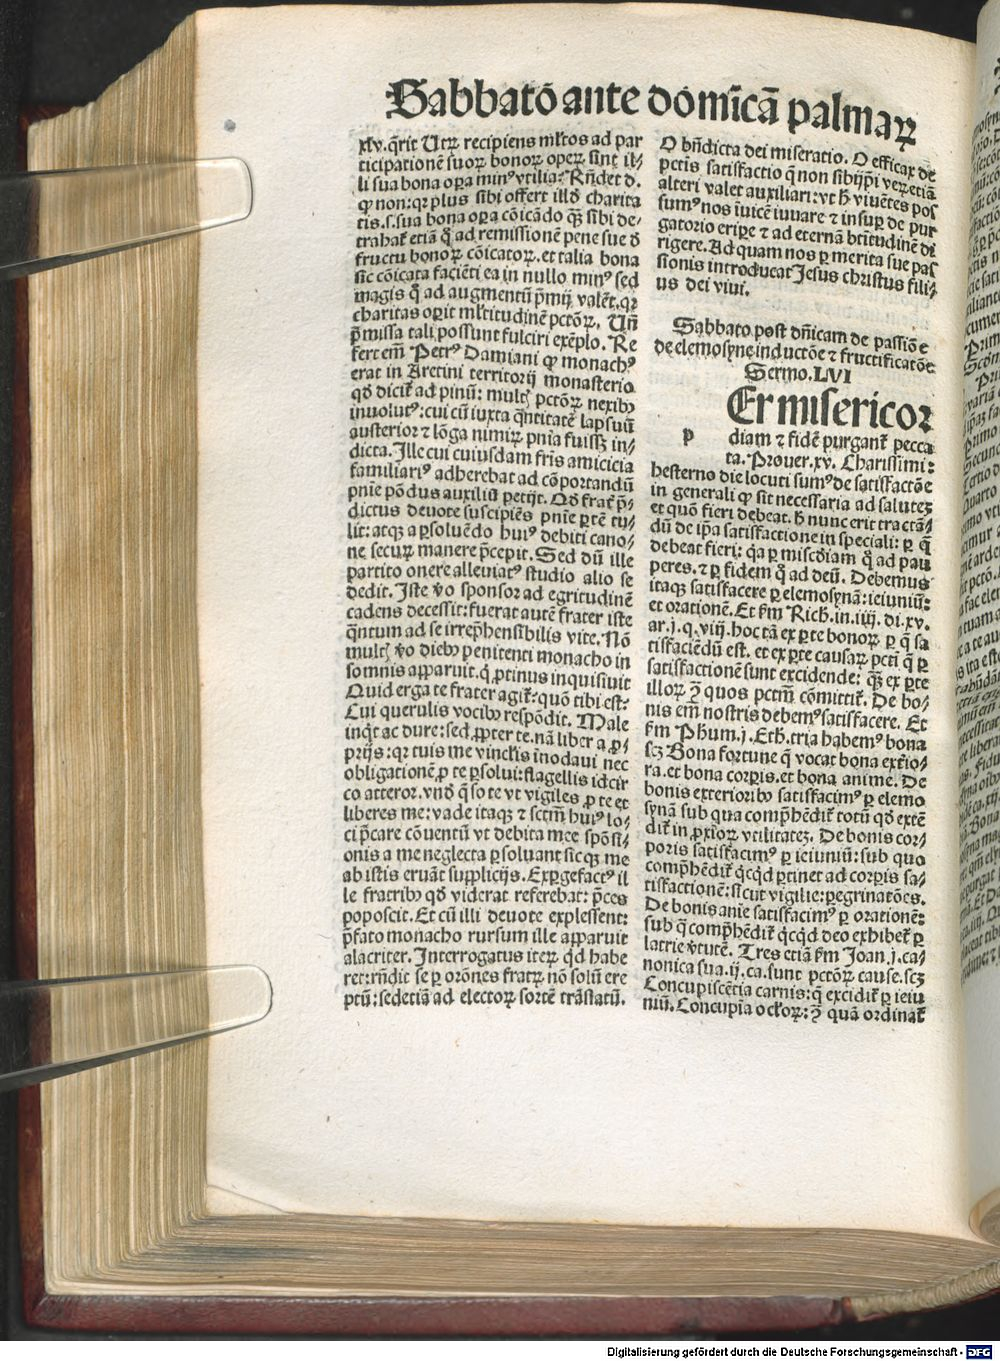 Sabbatō ante domīcā palmaꝝ
xlv. q̄rit Utꝝ recipiens ml̄tos ad par
ticipationē suoꝝ bonoꝝ operꝫ sint il-
li sua bona oꝑa minꝰ vtilia: Rn̄det ꝺ.
ꝙ non: qꝛ plus sibi offert illō charita
tis.s.sua bona oꝑa cōicādo qꝫ sibi de-
trahat̄ etiā q̊ ad remissionē pene sue ꝺ
fructu bonoꝝ cōicatoꝝ. et talia bona
sic cōicata faciēti ea in nullo minꝰ sed
magis q̊ ad augmentū p̄mij valēt. qꝛ
charitas oꝑit ml̄titudinē pctōꝝ. Un̄
p̄missa tali possunt fulciri exēplo. Re
fert em̄ Petrꝰ Damiani ꝙ monachꝰ
erat in Aretini territorij monasterio
qd̄ dicit̄ ad pinū: mult̄ pctōꝝ nexibꝰ
inuolutꝰ: cui cū iuxta q̄ntitatē lapsuū
austerior ⁊ lōga nimiꝝ pn̄ia fuissꝫ in-
dicta. Ille cui cuiusdam fr̄is amicicia
familiariꝰ adherebat ad cōportandū
pn̄ie pōdus auxiliū petijt. Qd̄ frat̄ p̄-
dictus deuote suscipiēs pn̄ie ꝑtē tu-
lit: atqꝫ a ꝑsoluēdo huiꝰ debiti cano-
ne securꝫ manere p̄cepit. Sed dū ille
partito onere alleuiatꝰ studio alio se
dedit. Iste v̄o sponsor ad egritudinē
cadens decessit: fuerat autē frater iste
q̄ntum ad se irrep̄hensibilis vite. Nō
mult̄ v̄o diebꝰ penitenti monacho in
somnis apparuit. q̇ ꝓtinus inquisiuit
Quid erga te frater agit̄: quō tibi est:
Cui querulis vocibꝰ respōdit. Male
inq̇t ac dure: sed ꝓpter te. nā liber a ꝓ-
prijs: qꝛ tuis me vincl̄is inodaui nec
obligationē ꝓ te ꝑsolui: flagellis idcir
co atteror. vnd̄ q̄so te vt vigiles ꝓ te et
liberes me: vade itaqꝫ ⁊ sctm̄ huiꝰ lo-
ci p̄care cōuentū vt debita mee spōsi-
onis a me neglecta ꝑsoluant sicqꝫ me
ab istis eruāt supplicijs. Exꝑgefactꝰ il
le fratribꝰ qd̄ viderat referebat: p̄ces
poposcit. Et cū illi deuote explessent:
p̄fato monacho rursum ille apparuit
alacriter. Interrogatus iterꝫ qd̄ habe
ret: rn̄dit se ꝑ orōnes fratꝝ nō solū ere
ptū: sed etiā ad electoꝝ sortē trāslatū.
O bn̄dicta dei miseratio. O efficax de
pctis satisfactio q̄ non sibijpi veꝝetiā
alteri valet auxiliari: vt h̄ viuētes pos
sumꝰ nos inuicē iuuare ⁊ insuꝑ de pur
gatorio eriꝑe ⁊ ad eternā btītudinē di
rigere. Ad quam nos ꝑ merita sue pas
sionis introducat Jesus christus fili-
us dei viui.
Sabbato post dn̄icam de passiōe
de elemosyne inductōe ⁊ fructificatōe
Sermo.LVI
p Er misericor
diam ⁊ fidē purgant̄ pecca
ta. Prouer.xv. Charissimi:
hesterno die locuti sumꝰ de satisfactōe
in generali ꝙ sit necessaria ad salutē
et quō fieri debeat. h̄ nunc erit tractā-
dū de ip̄a satisfactione in speciali: ꝑ q̄
debeat fieri: q̇a ꝑ misc̄diam q̊ ad pau
peres. ⁊ ꝑ fidem q̊ ad deū. Debemus
itaqꝫ satisfacere ꝑ elemosynā: ieiuniū:
et orationē. Et fm̄ Rich. in.iiij. di.xv.
ar.j.q.viij. hoc tā ex ꝑte bonoꝝ ꝑ q̄ sa
tisfaciēdū est. et ex ꝑte causaꝝ pcti q̄ ꝑ
satisfactionē sunt excidende: qꝫ ex ꝑte
illoꝝ ꝯ̄ quos pctm̄ cōmittit̄. De bo-
nis em̄ nostris debemꝰ satisfacere. Et
fm̄ Phum.j.Eth. tria habemꝰ bona
scꝫ Bona fortune q̄ vocat bona ext̄io-
ra. et bona corꝑis. et bona anime. De
bonis exterioribꝰ satisfacimꝰ ꝑ elemo
synā sub qua comp̄hēdit̄ totū qd̄ extē
dit̄ in ꝓxioꝝ vtilitatē. De bonis cor-
poris satisfacimꝰ ꝑ ieiuniū: sub quo
comp̄hēdit̄ qcqd̄ ꝑtinet ad corꝑis sa-
tisfactionē: sicut vigilie: pegrinatōes.
De bonis anie satisfacimꝰ ꝑ orationē:
sub q̄ comp̄hēdit̄ qcqd̄ deo exhibet̄ ꝑ
latrie v̄tutē. Tres etiā fm̄ Joan.j.ca-
nonica sua.ij.ca. sunt pctōꝝ cause. scꝫ
Concupiscētia carnis: q̄ excidit̄ ꝑ ieiu
niū. Concupīa oclōꝝ: ꝯ̄ quā ordinat̄
Digitalisierung gefördert durch die Deutsche Forschungsgemeinschaft - DFG